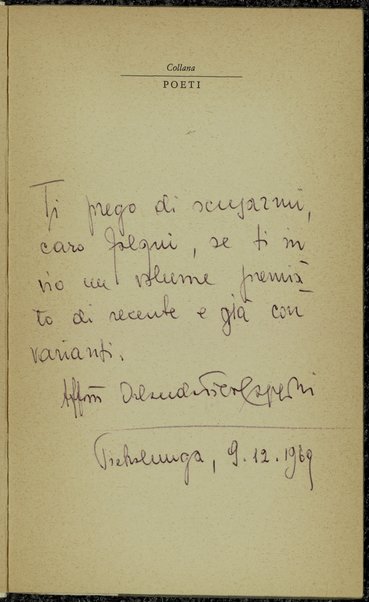 Collana
POETI
Ti prego di scusarmi,
caro Falqui, se ti in
vio un volume premia
to di recente e già con
varianti.
Aff.mi
Pietralunga, 9.12.1969